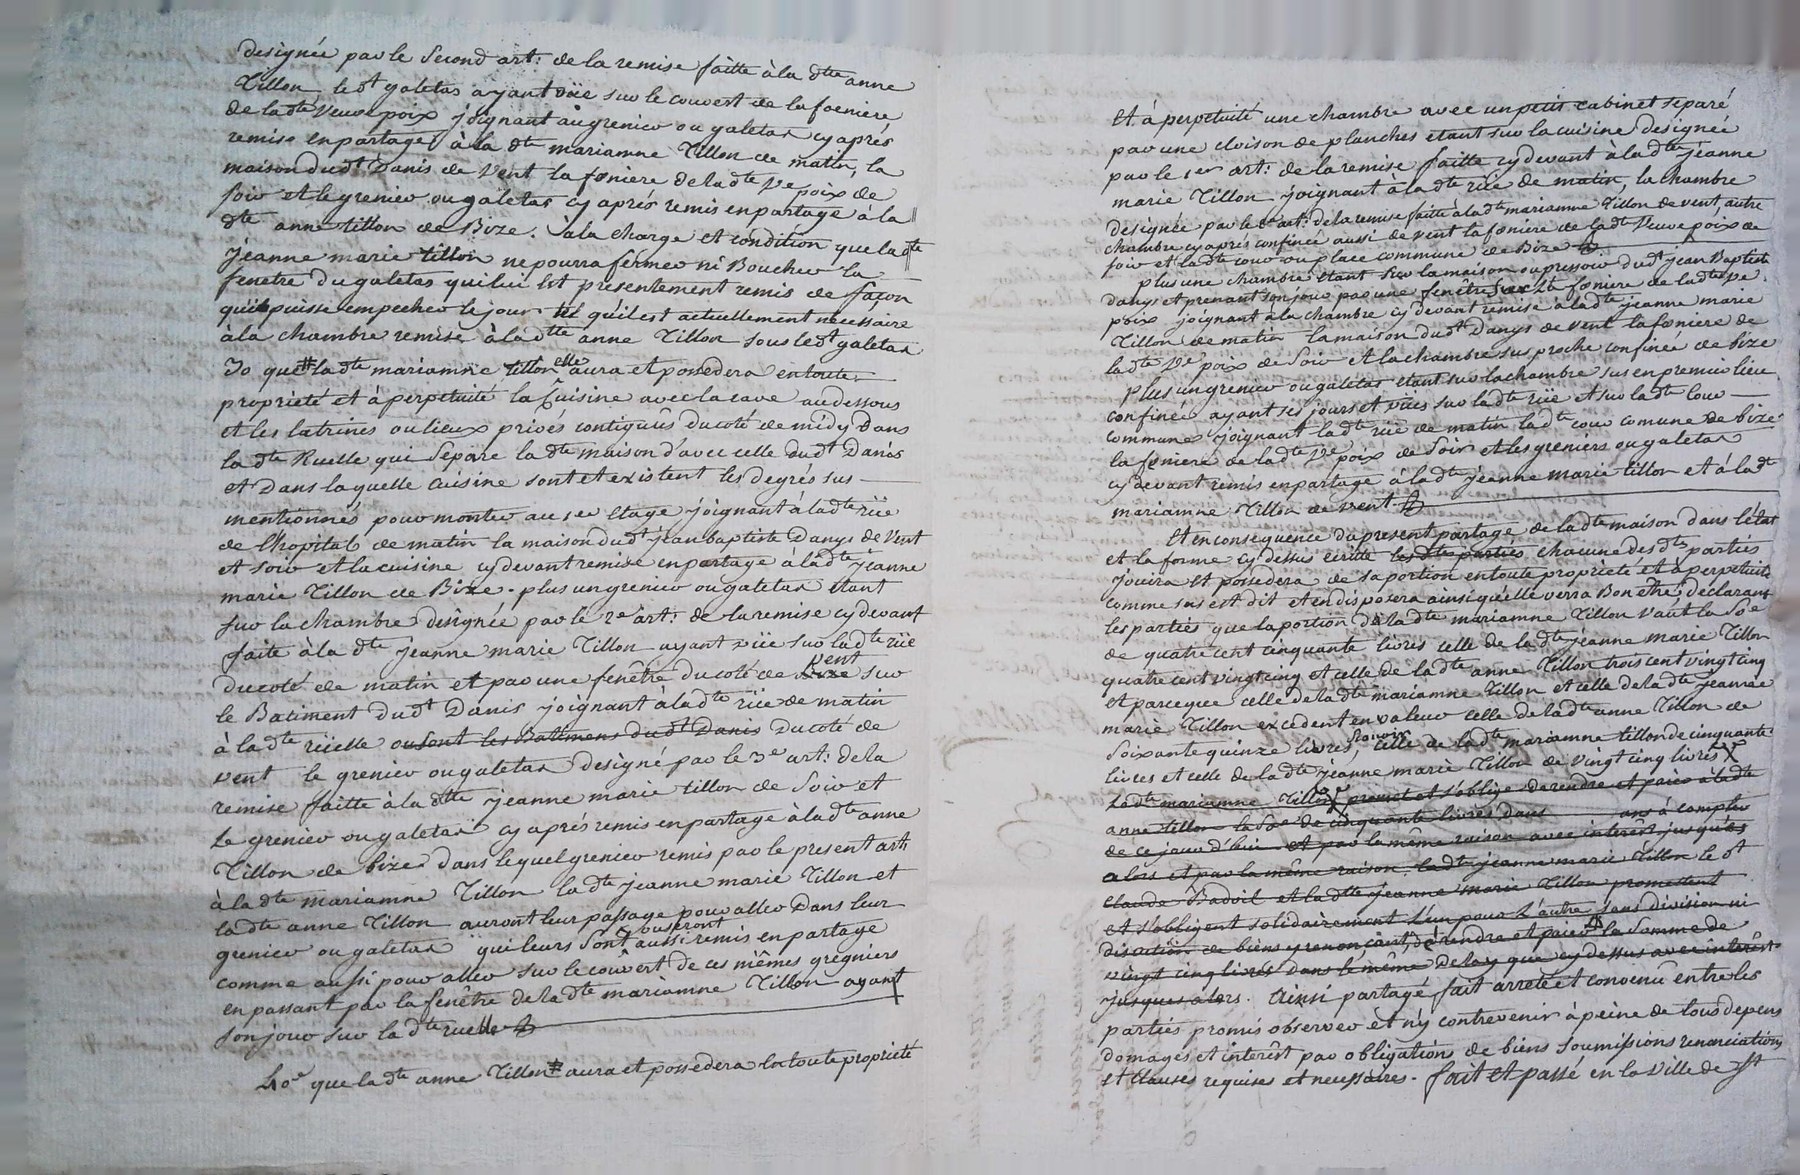 designée par le second art: de la remise faitte à la dte anne
Tillon le dt galetas ayant vüe sur le couvert de la feniere
de la dte veuve poix joignant au grenier ou galetas cy après
remis en partage à la dte mariamne Tillon de matin, la
maison du dt Danis de vent la feniere de la dte ve poix de
soir et le grenier ou galetas cy après remis en partage à la
dte anne tillon de Bize. à la charge et condition que la dte
jeanne marie tillon ne pourra fermer ni Boucher la
fenetre du galetas qui lui est presentement remis de façon
qu'il puisse empecher le jour tel qu'il est actuellement necessaire
à la chambre remise à la dte anne Tillon sous le dt galetas
3o que la dte mariamne tillon elle aura et possedera en toute
proprieté et à perpetuité la Cuisine avec la cave au dessous
et les latrines ou lieux privés contigues du coté de midy Dans
la dte Ruelle qui separe la dte maison d'avec celle du dt Danis
et Dans laquelle cuisine sont et existent les degrés sus
mentionnés pour monter au 1er Etage joignant à la dte rüe
de l'hopital de matin la maison du dt jean baptiste Danys de vent
et soir et la cuisine cy devant remise en partage à la dte jeanne
marie Tillon de Bize. plus un grenier ou galetas étant
sur la chambre designée par le 2e art: de la remise cy devant
faite à la dte jeanne marie Tillon ayant vüe sur la dte rüe
du coté de matin et par une fenêtre du coté de Bize vent sur
le Batiment du dt Danis joignant à la dte rüe de matin
à la dte rüelle ou sont les Batimens du dt Danis du coté de
vent le grenier ou galetas designé par le 3e art: de la
remise faitte à la dtte jeanne marie tillon de soir et
le grenier ou galetas cy après remis en partage à la dte anne
Tillon de bize dans lequel grenier remis par le present art:
à la dte mariamne Tillon la dte jeanne marie Tillon et
la dte anne Tillon auront leur passage pour aller Dans leur
grenier ou galetas qui leurs sont ou seront aussi remis en partage
comme aussi pour aller sur le couvert de ces mêmes greniers
en passant par la fenêtre de la dte mariamne Tillon ayant
son jour sur la dte ruelle
4o que la dte anne Tillon aura et possedera en toute proprieté
et à perpetuité une chambre avec un petit cabinet separé
par une cloison de planches etant sur la cuisine designée
par le 1er art: de la remise faitte cy devant à la dte jeanne
marie Tillon joignant à la dte rüe de matin, la chambre
designée par le 2e art: de la remise faitte à la dte mariamne Tillon de vent autre
chambre cy après confinée aussi de vent la feniere de la dte veuve poix de
soir et la dte cour ou place commune de Bize
plus une chambre etant sur la maison ou pressoir du dt jean Baptiste
Danys et prenant son jour par une fenêtre sur la feniere de la dte ve
poix joignant à la chambre cy devant remise à la dte jeanne marie
Tillon de matin la maison du dt Danys de vent la feniere de
la dte ve poix de soir et la chambre sus proche confinée de bize
plus un grenier ou galetas etant sur la chambre sus en premier lieu
confinée ayant ses jours et vües sur la dte rüe et sur la dte cour
commune joignant la dte rüe de matin la dte cour comune de bize
la feniere de la dte ve poix de soir et les greniers ou galetas
cy devant remis en partage à la dte jeanne marie tillon et à la dte
mariamne Tillon de vent
Et en consequence du present partage de la dte maison dans l'etat
et la forme cy dessus ecrite les dtes parties chacune des dtes parties
jouira et possedera de sa portion en toute proprieté et à perpetuité
comme sus est dit et en disposera ainsi qu'elle verra Bon être, declarant
les parties que la portion de la dte mariamne Tillon vaut la so͞e
de quatre cent cinquante livres celle de la dte jeanne marie Tillon
quatre cent vingt cinq et celle de la dte anne Tillon trois cent vingt cinq
et parceque celle de la dte mariamne Tillon et celle de la dte jeanne
marie Tillon excedent en valeur celle de la dte anne Tillon de
soixante quinze livres, sçavoir celle de la dte mariamne tillon de cinquante
livres et celle de la dte jeanne marie Tillon de vingt cinq livres
la dte mariamne Tillon promet et s'oblige de rendre et païer à la dte
anne tillon la so͞e de cinquante livres dans ans à compter
de ce jourd'hui et par la même raison avec interêt jusqu'es
alors et par la même raison, la dte jeanne marie Tillon le dt
Claude Badoil et la dtte jeanne marie Tillon promettent
et s'obligent solidairement l'un pour l'autre sans division ni
discution de biens y renonçant, de rendre et païer la somme de
vingt cinq livres dans le même Delay que cy dessus avec interêt
jusques alors. Ainsi partagé fait arreté et convenû entre les
parties promis observer et n'y contrevenir à peine de tous depens
domages et interêt par obligation de biens soumissions renonciations
et clauses requises et necessaires. fait et passé en la ville de st